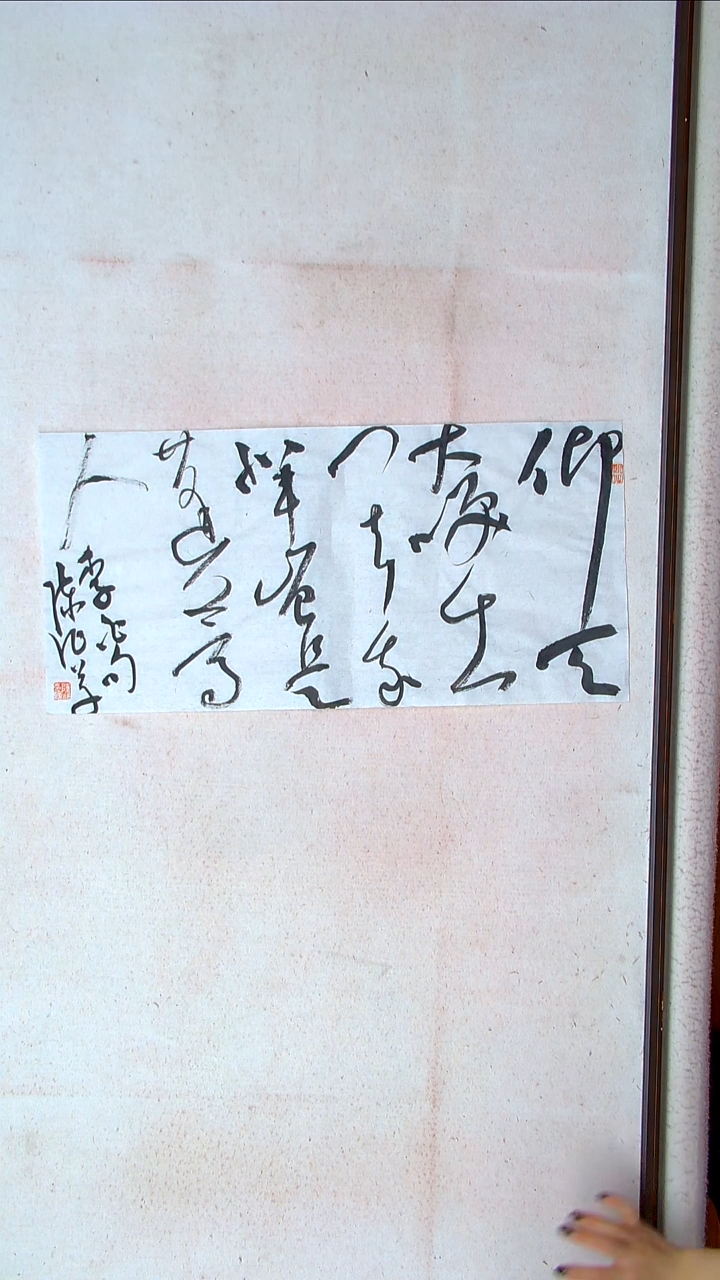 仰天
大笑出
门去我
辈岂是
蓬蒿
人
李白句